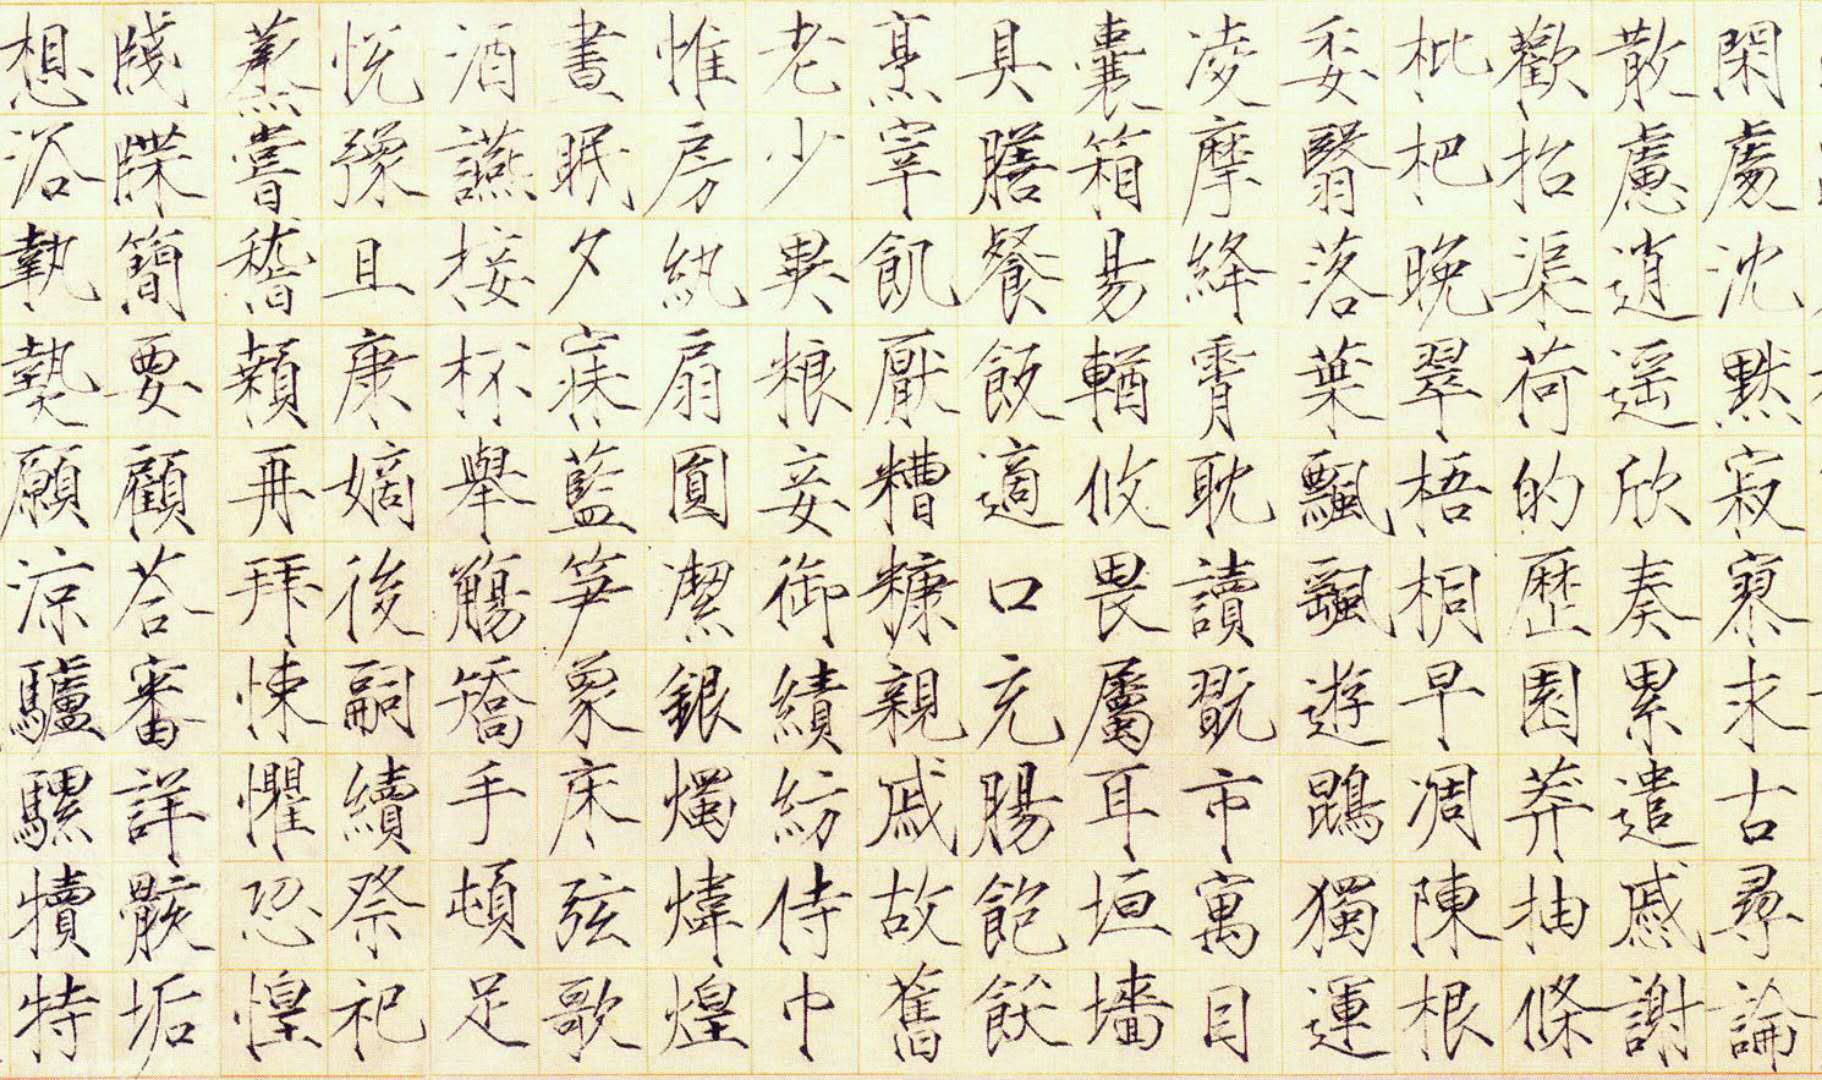 閑處沈默寂寥求古尋論
散慮逍遥欣奏累遣慼謝
歡招渠荷的歷園莽抽條
枇杷晚翠梧桐早凋陳根
委翳落葉飄颻遊鵾獨運
凌摩絳霄耽讀翫市寓目
囊箱易輶攸畏屬耳垣墻
具膳餐飯適口充腸飽飫
烹宰飢厭糟糠親戚故舊
老少異粮妾御績紡侍巾
惟房紈扇圓潔銀燭煒煌
晝眠夕寐藍笋象床弦歌
酒讌接杯舉觴矯手頓足
悅豫且康嫡後嗣續祭祀
蒸嘗稽顙再拜悚懼恐惶
牋牒簡要顧荅審詳骸垢
想浴執熱願涼驢騾犢特